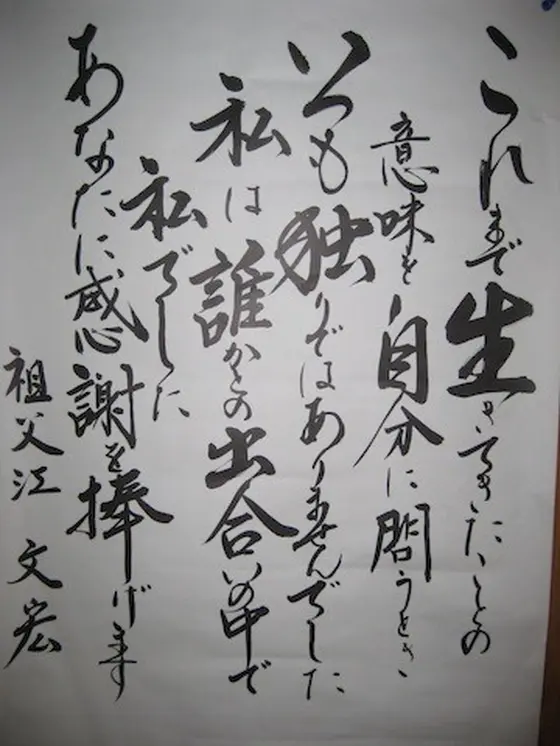 これまで生きてきたことの
意味を自分に問うとき
いつも独りではありませんでした
私は誰かとの出合いの中で
私でした
あなたに感謝を捧げます
祖父江 文宏